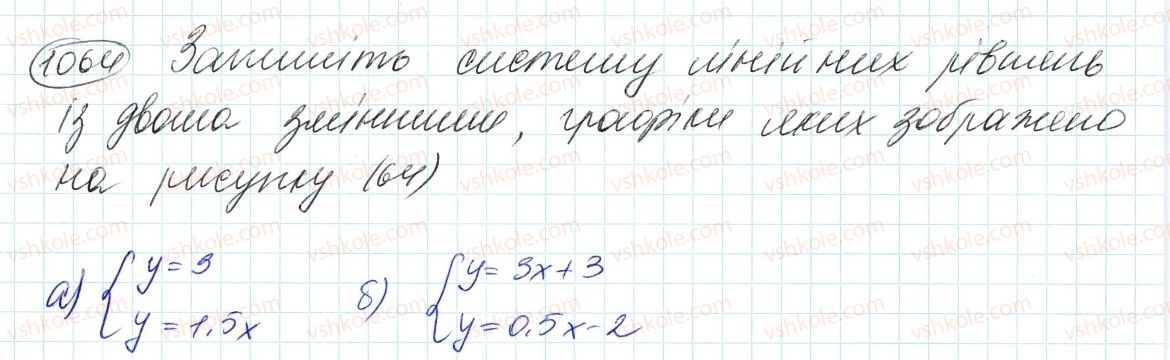 1064 Запишіть систему лінійних рівнянь
із двома змінними, графіки яких зображено
на рисунку (64)
а) { y = 3 б) { y = 3x + 3
y = 1,5x y = 0,5x - 2